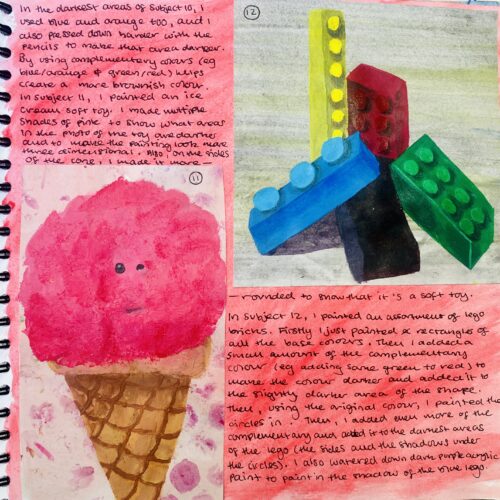 In the darkest areas of subject 10, I
used blue and orange too, and I
also pressed down harder with the
pencils to make that area darker.
By using complementary colours (eg
blue/orange & green/red) helps
create a more brownish colour.
In subject 11, I painted an ice
cream soft toy. I made multiple
shades of pink to show what areas
in the photo of the toy are darker
and to make the painting look more
three dimensional. Also, on the sides
of the cone, I made it more —
11
12
— rounded to show that it's a soft toy.
In subject 12, I painted an assortment of lego
bricks. Firstly I just painted rectangles of
all the base colours. Then I added a
small amount of the complementary
colour (eg adding some green to red) to
make the colour darker and added it to
the slightly darker area of the shape.
Then, using the original colour, I painted the
circles in. Then, I added even more of the
complementary and added it to the darkest areas
of the lego (the sides and the shadows under
the circles). I also watered down dark purple acrylic
paint to paint in the shadow of the blue lego.